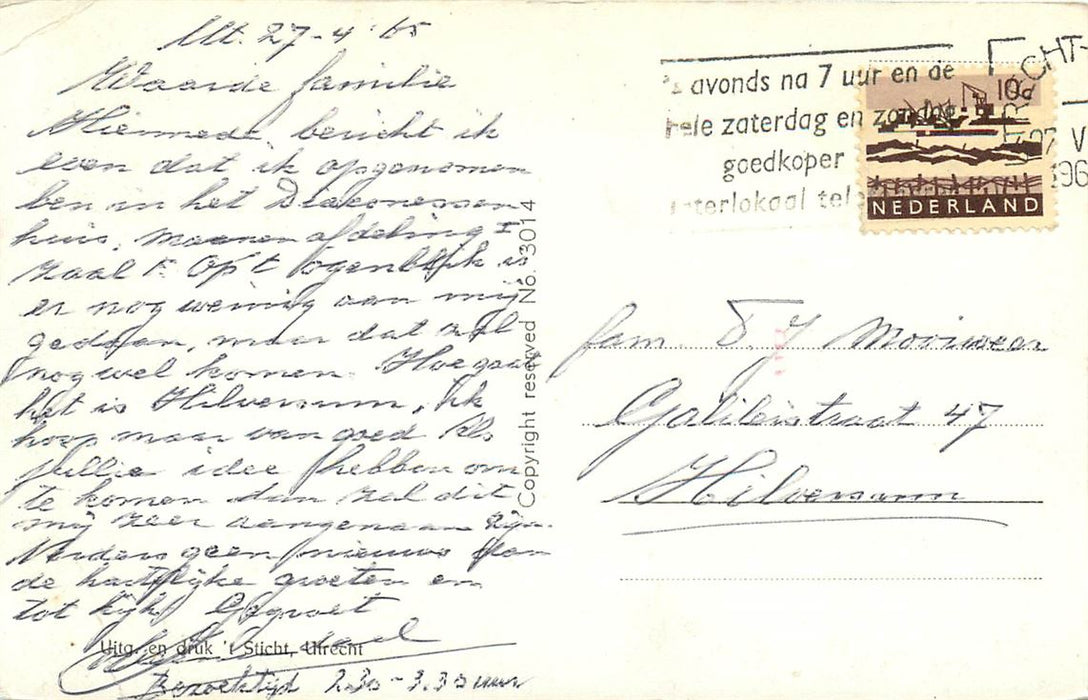 Utr. 27-4-'65
Waarde familie
Hiermede bericht ik
even dat ik opgenomen
ben in het Diakonessen
huis, mannen afdeling I
zaal F. Op 't ogenblik is
er nog weinig aan mij
gedaan, maar dat zal
nog wel komen. Hoe gaat
het in Hilversum, ik
hoop maar van goed. Als
jullie idee hebben om
te komen dan zal dit
mij zeer aangenaam zijn.
Verders geen nieuws dan
de hartelijke groeten en
tot kijk Gegroet
Uitg. en druk 't Sticht, Utrecht
Bezoektijd 2.30 - 3.30 uur
Copyright reserved No. 3014
's avonds na 7 uur en de
hele zaterdag en zondag
goedkoper
interlokaal tele
UTRECHT
27 V
196
10c
NEDERLAND
fam D. J
Galileistraat 47
Hilversum